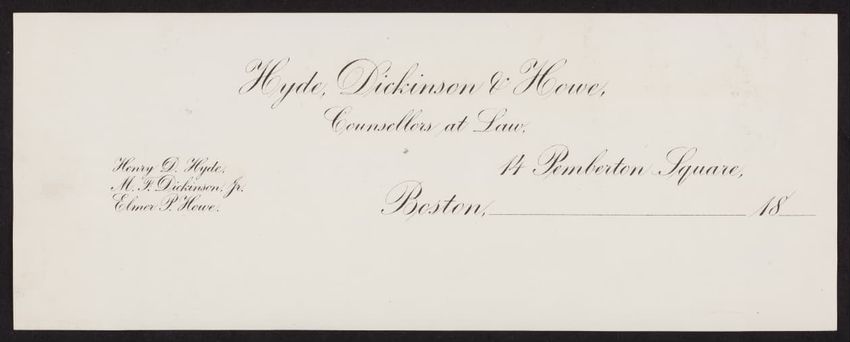 Hyde, Dickinson & Howe,
Counsellors at Law.
14 Pemberton Square,
Henry D. Hyde.
M. F. Dickinson, Jr.
Elmer P. Howe.
Boston, 18